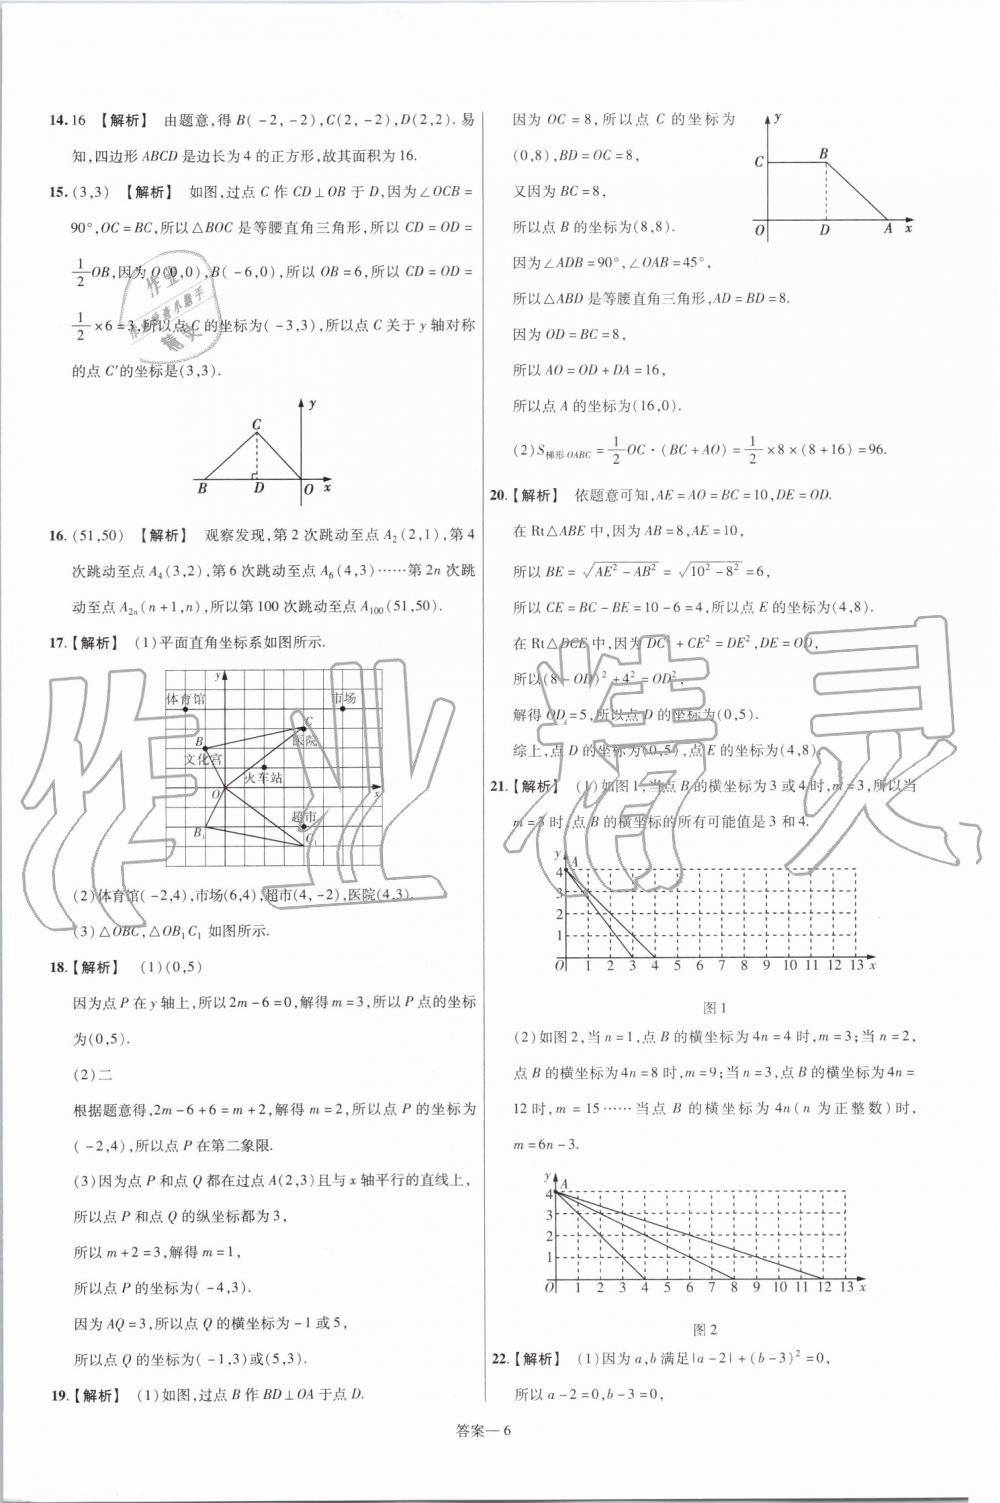 14. 16 【解析】 由题意,得 B(-2,-2),C(2,-2),D(2,2). 易
知,四边形 ABCD 是边长为 4 的正方形,故其面积为 16.
15. (3,3) 【解析】 如图,过点 C 作 CD⊥OB 于 D,因为∠OCB =
90°,OC = BC,所以△BOC 是等腰直角三角形,所以 CD = OD =
1/2 OB,因为 O(0,0),B(-6,0),所以 OB = 6,所以 CD = OD =
1/2 ×6 = 3,所以点 C 的坐标为(-3,3),所以点 C 关于 y 轴对称
的点 C′的坐标是(3,3).
y
C
B D O x
16. (51,50) 【解析】 观察发现,第 2 次跳动至点 A₂(2,1),第 4
次跳动至点 A₄(3,2),第 6 次跳动至点 A₆(4,3)……第 2n 次跳
动至点 A₂ₙ(n+1,n),所以第 100 次跳动至点 A₁₀₀(51,50).
17. 【解析】 (1)平面直角坐标系如图所示.
y
体育馆 市场
C
医院
B
文化宫
火车站
O x
超市
B₁
C₁
(2)体育馆(-2,4),市场(6,4),超市(4,-2),医院(4,3).
(3)△OBC,△OB₁C₁ 如图所示.
18. 【解析】 (1)(0,5)
因为点 P 在 y 轴上,所以 2m-6=0,解得 m=3,所以 P 点的坐标
为(0,5).
(2)二
根据题意得,2m-6+6=m+2,解得 m=2,所以点 P 的坐标为
(-2,4),所以点 P 在第二象限.
(3)因为点 P 和点 Q 都在过点 A(2,3)且与 x 轴平行的直线上,
所以点 P 和点 Q 的纵坐标都为 3,
所以 m+2=3,解得 m=1,
所以点 P 的坐标为(-4,3).
因为 AQ=3,所以点 Q 的横坐标为-1 或 5,
所以点 Q 的坐标为(-1,3)或(5,3).
19. 【解析】 (1)如图,过点 B 作 BD⊥OA 于点 D.
因为 OC=8,所以点 C 的坐标为
(0,8),BD=OC=8,
又因为 BC=8,
所以点 B 的坐标为(8,8).
因为∠ADB=90°,∠OAB=45°,
所以△ABD 是等腰直角三角形,AD=BD=8.
因为 OD=BC=8,
所以 AO=OD+DA=16,
所以点 A 的坐标为(16,0).
y
C B
O D A x
(2)S梯形OABC = 1/2 OC·(BC+AO) = 1/2 ×8×(8+16)=96.
20. 【解析】 依题意可知,AE=AO=BC=10,DE=OD.
在 Rt△ABE 中,因为 AB=8,AE=10,
所以 BE=√(AE²-AB²)=√(10²-8²)=6,
所以 CE=BC-BE=10-6=4,所以点 E 的坐标为(4,8).
在 Rt△DCE 中,因为 DC²+CE²=DE²,DE=OD,
所以(8-OD)²+4²=OD²,
解得 OD=5,所以点 D 的坐标为(0,5).
综上,点 D 的坐标为(0,5),点 E 的坐标为(4,8).
21. 【解析】 (1)如图 1,当点 B 的横坐标为 3 或 4 时,m=3,所以当
m=3 时,点 B 的横坐标的所有可能值是 3 和 4.
y
4 A
3
2
1
O 1 2 3 4 5 6 7 8 9 10 11 12 13 x
图 1
(2)如图 2,当 n=1,点 B 的横坐标为 4n=4 时,m=3;当 n=2,
点 B 的横坐标为 4n=8 时,m=9;当 n=3,点 B 的横坐标为 4n=
12 时,m=15……当点 B 的横坐标为 4n(n 为正整数)时,
m=6n-3.
y
4 A
3
2
1
O 1 2 3 4 5 6 7 8 9 10 11 12 13 x
图 2
22. 【解析】 (1)因为 a,b 满足|a-2|+(b-3)²=0,
所以 a-2=0,b-3=0,
答案—6
作业精灵